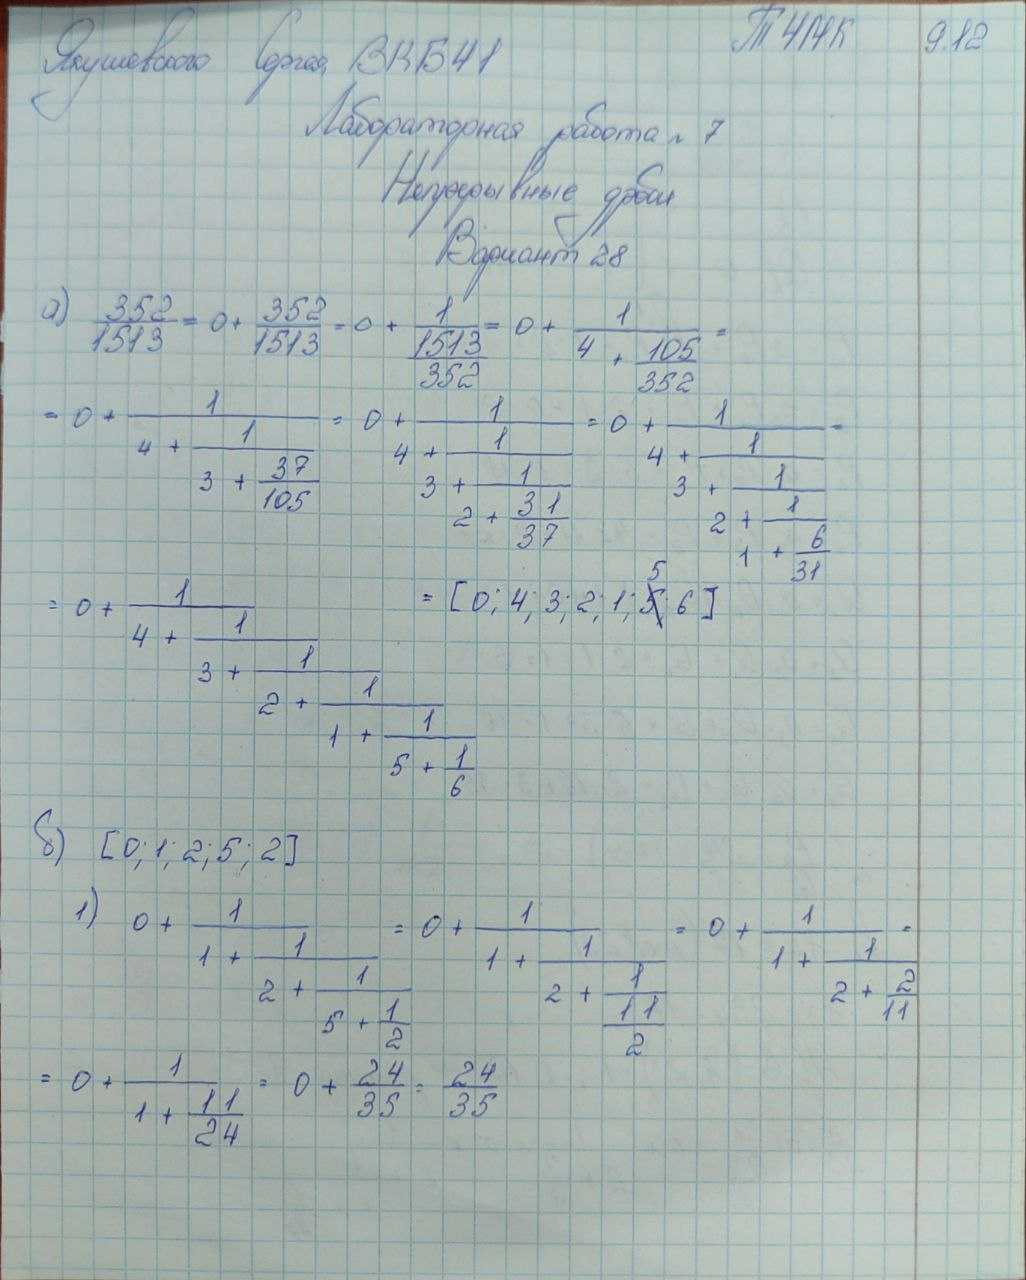 Якушевского Сергея ВКБ41 ТЧМК 9.12
Лабораторная работа n 7
Непрерывные дроби
Вариант 28
а) 352/1513 = 0 + 352/1513 = 0 + 1/(1513/352) = 0 + 1/(4 + 105/352) =
= 0 + 1/(4 + 1/(3 + 37/105)) = 0 + 1/(4 + 1/(3 + 1/(2 + 31/37))) = 0 + 1/(4 + 1/(3 + 1/(2 + 1/(1 + 6/31)))) =
= 0 + 1/(4 + 1/(3 + 1/(2 + 1/(1 + 1/(5 + 1/6))))) = [0; 4; 3; 2; 1; 5; 6]
б) [0; 1; 2; 5; 2]
1) 0 + 1/(1 + 1/(2 + 1/(5 + 1/2))) = 0 + 1/(1 + 1/(2 + 1/(11/2))) = 0 + 1/(1 + 1/(2 + 2/11)) =
= 0 + 1/(1 + 11/24) = 0 + 24/35 = 24/35